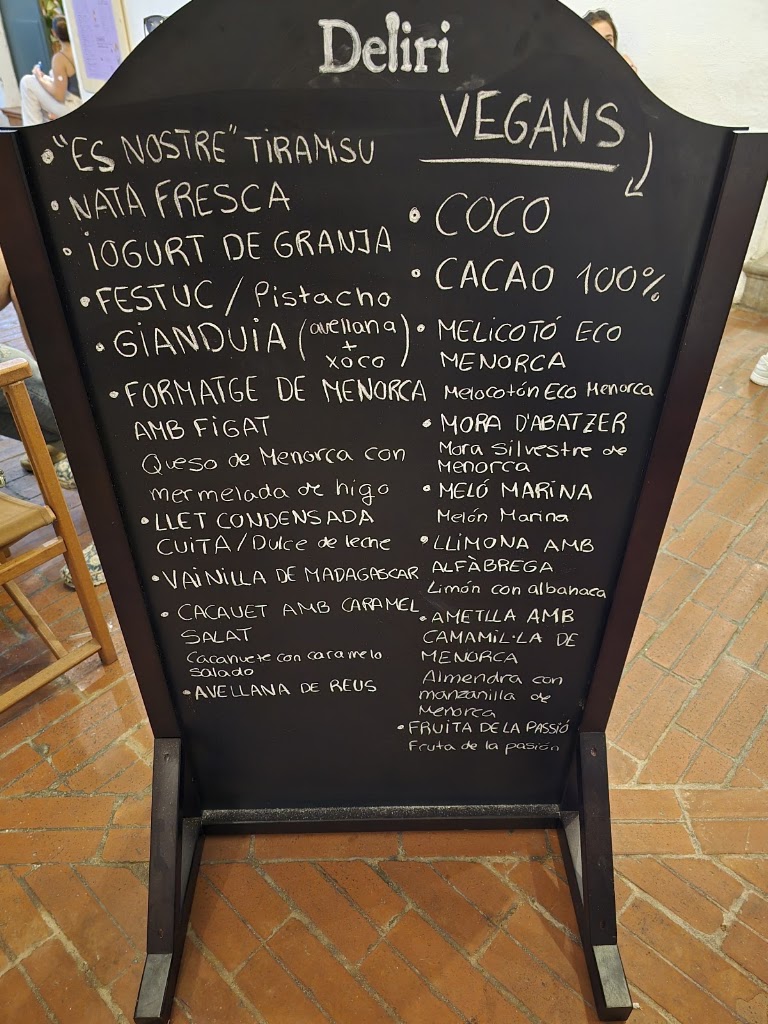 Deliri
• "ES NOSTRE" TIRAMISU
• NATA FRESCA
• IOGURT DE GRANJA
• FESTUC / Pistacho
• GIANDUIA (avellana
+
xoco)
• FORMATGE DE MENORCA
AMB FIGAT
Queso de Menorca con
mermelada de higo
• LLET CONDENSADA
CUITA / Dulce de leche
• VAINILLA DE MADAGASCAR
• CACAUET AMB CARAMEL
SALAT
Cacahuete con caramelo
salado
• AVELLANA DE REUS
VEGANS
• COCO
• CACAO 100%
• MELICOTÓ ECO
MENORCA
Melocotón Eco Menorca
• MORA D'ABATZER
Mora Silvestre de
Menorca
• MELÓ MARINA
Melón Marina
• LLIMONA AMB
ALFÀBREGA
Limón con albahaca
• AMETLLA AMB
CAMAMIL·LA DE
MENORCA
Almendra con
manzanilla de
Menorca
• FRUITA DE LA PASSIÓ
Fruta de la pasión